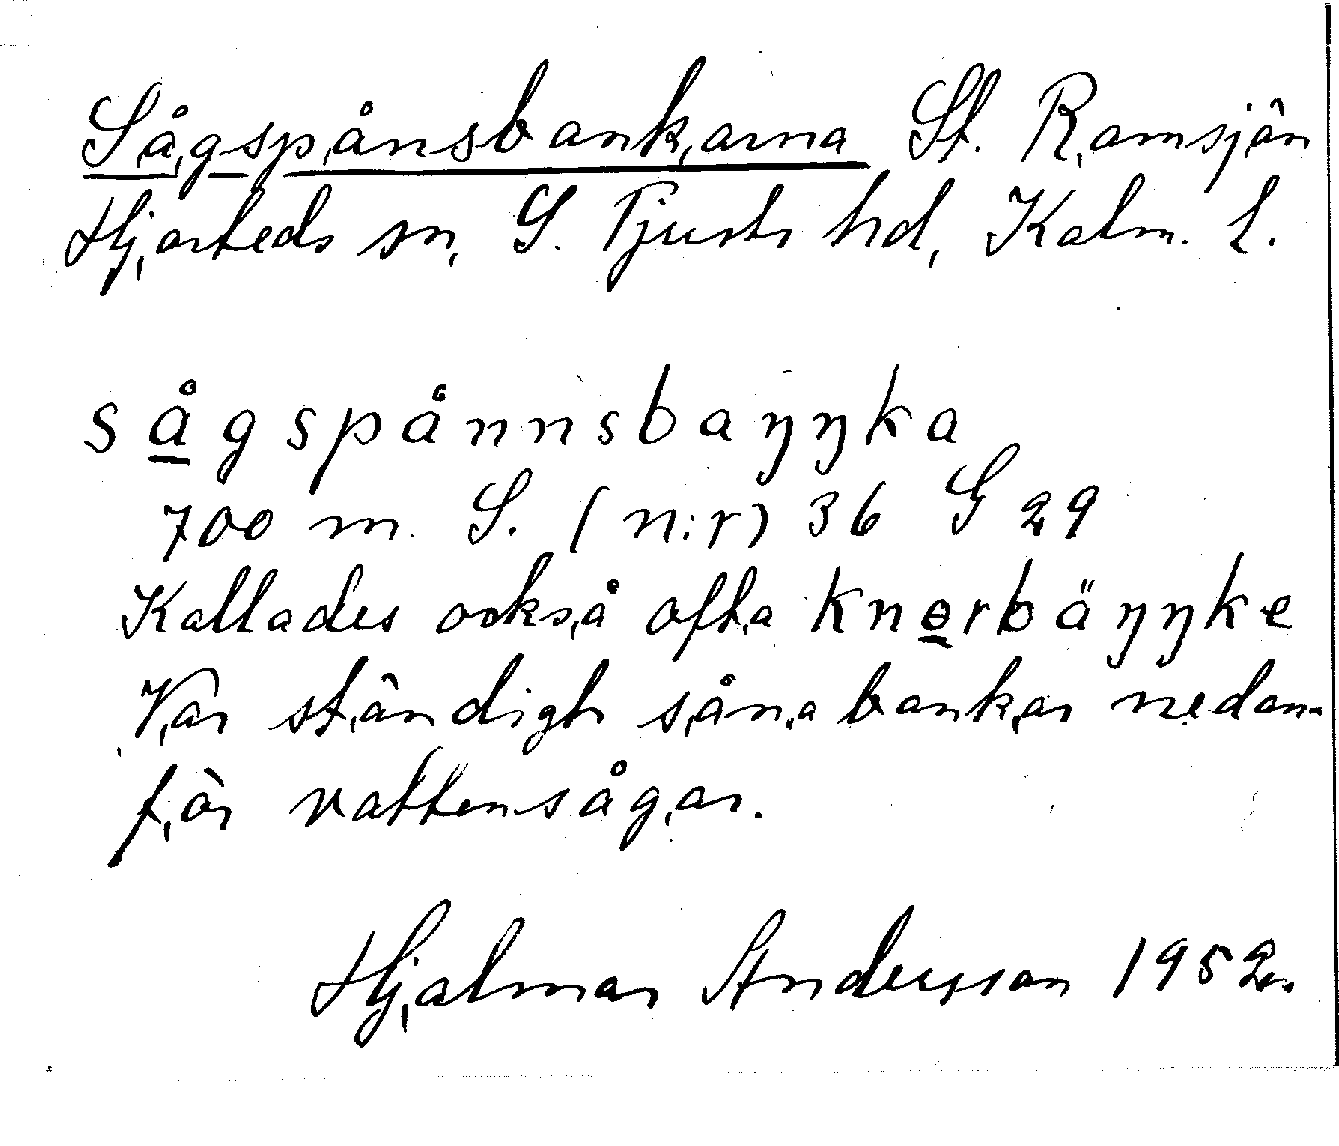 Sågspånsbankarna St. Ramsjön
Hjorteds sn, S. Tjusts hd, Kalm. l.
sågspånnsbaŋŋka
700 m. S. (n:r) 36 G 29
Kallades också ofta knerbäŋŋke
Var ständigt såna bankar nedan-
för vattensågar.
Hjalmar Andersson 1952.